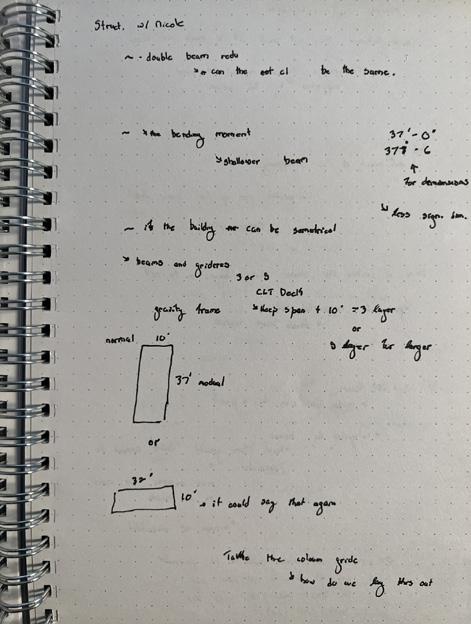 Struct. w/ Nicole
~ - double beam redu
↳ or can the ext cl be the same.
~ ↳ the bending moment
↳ shallower beam
37'-0"
- 6
↑
For demensions
↳ less sign. dim.
~ if the buildng can be sametrical
↳ beams and grideres
3 or 5
CLT Deck
gravity frame
↳ Keep span + 10' = 3 layer
or
5 layer for larger
normal 10'
37'
or
32'
10' it could say that again
the column gride
↳ how do we lay this out